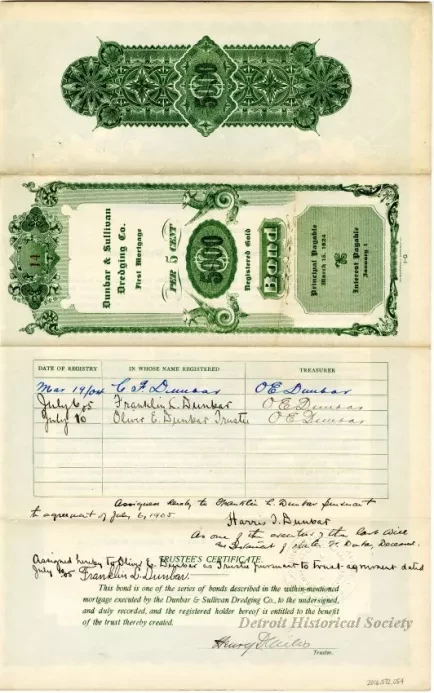 5000
14
Dunbar & Sullivan
Dredging Co.
First Mortgage
5 PER CENT
5000
Registered Gold
Bond
Principal Payable
March 15, 1924
Interest Payable
January 1
DATE OF REGISTRY IN WHOSE NAME REGISTERED TREASURER
Mar 19/04 C F Dunbar O E Dunbar
July 6 05 Franklin L. Dunbar O E Dunbar
July 10 Oliver E Dunbar Trustee O E Dunbar
Assigned hereby to Franklin L. Dunbar pursuant
to agreement of July 6, 1905.
Harris T. Dunbar
As one of the executors of the last will
and testament of Dunbar, Deceased.
Assigned hereby to Oliver E. Dunbar as Trustee pursuant to trust agreement dated
July 05 Franklin L. Dunbar.
TRUSTEE'S CERTIFICATE.
This bond is one of the series of bonds described in the within-mentioned
mortgage executed by the Dunbar & Sullivan Dredging Co., to the undersigned,
and duly recorded, and the registered holder hereof is entitled to the benefit
of the trust thereby created.
Detroit Historical Society
Henry
Trustee.
2016.072.054